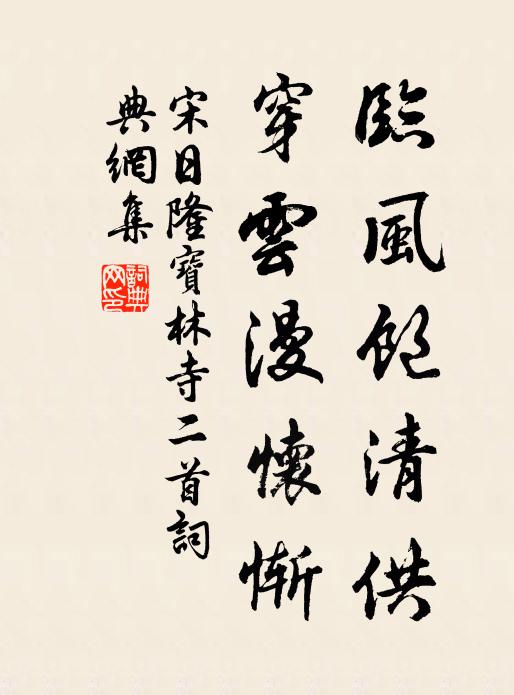 臨風飽清供
穿雲漫懷慚
宋日隆寶林寺二首詞
典網集
詞典網印